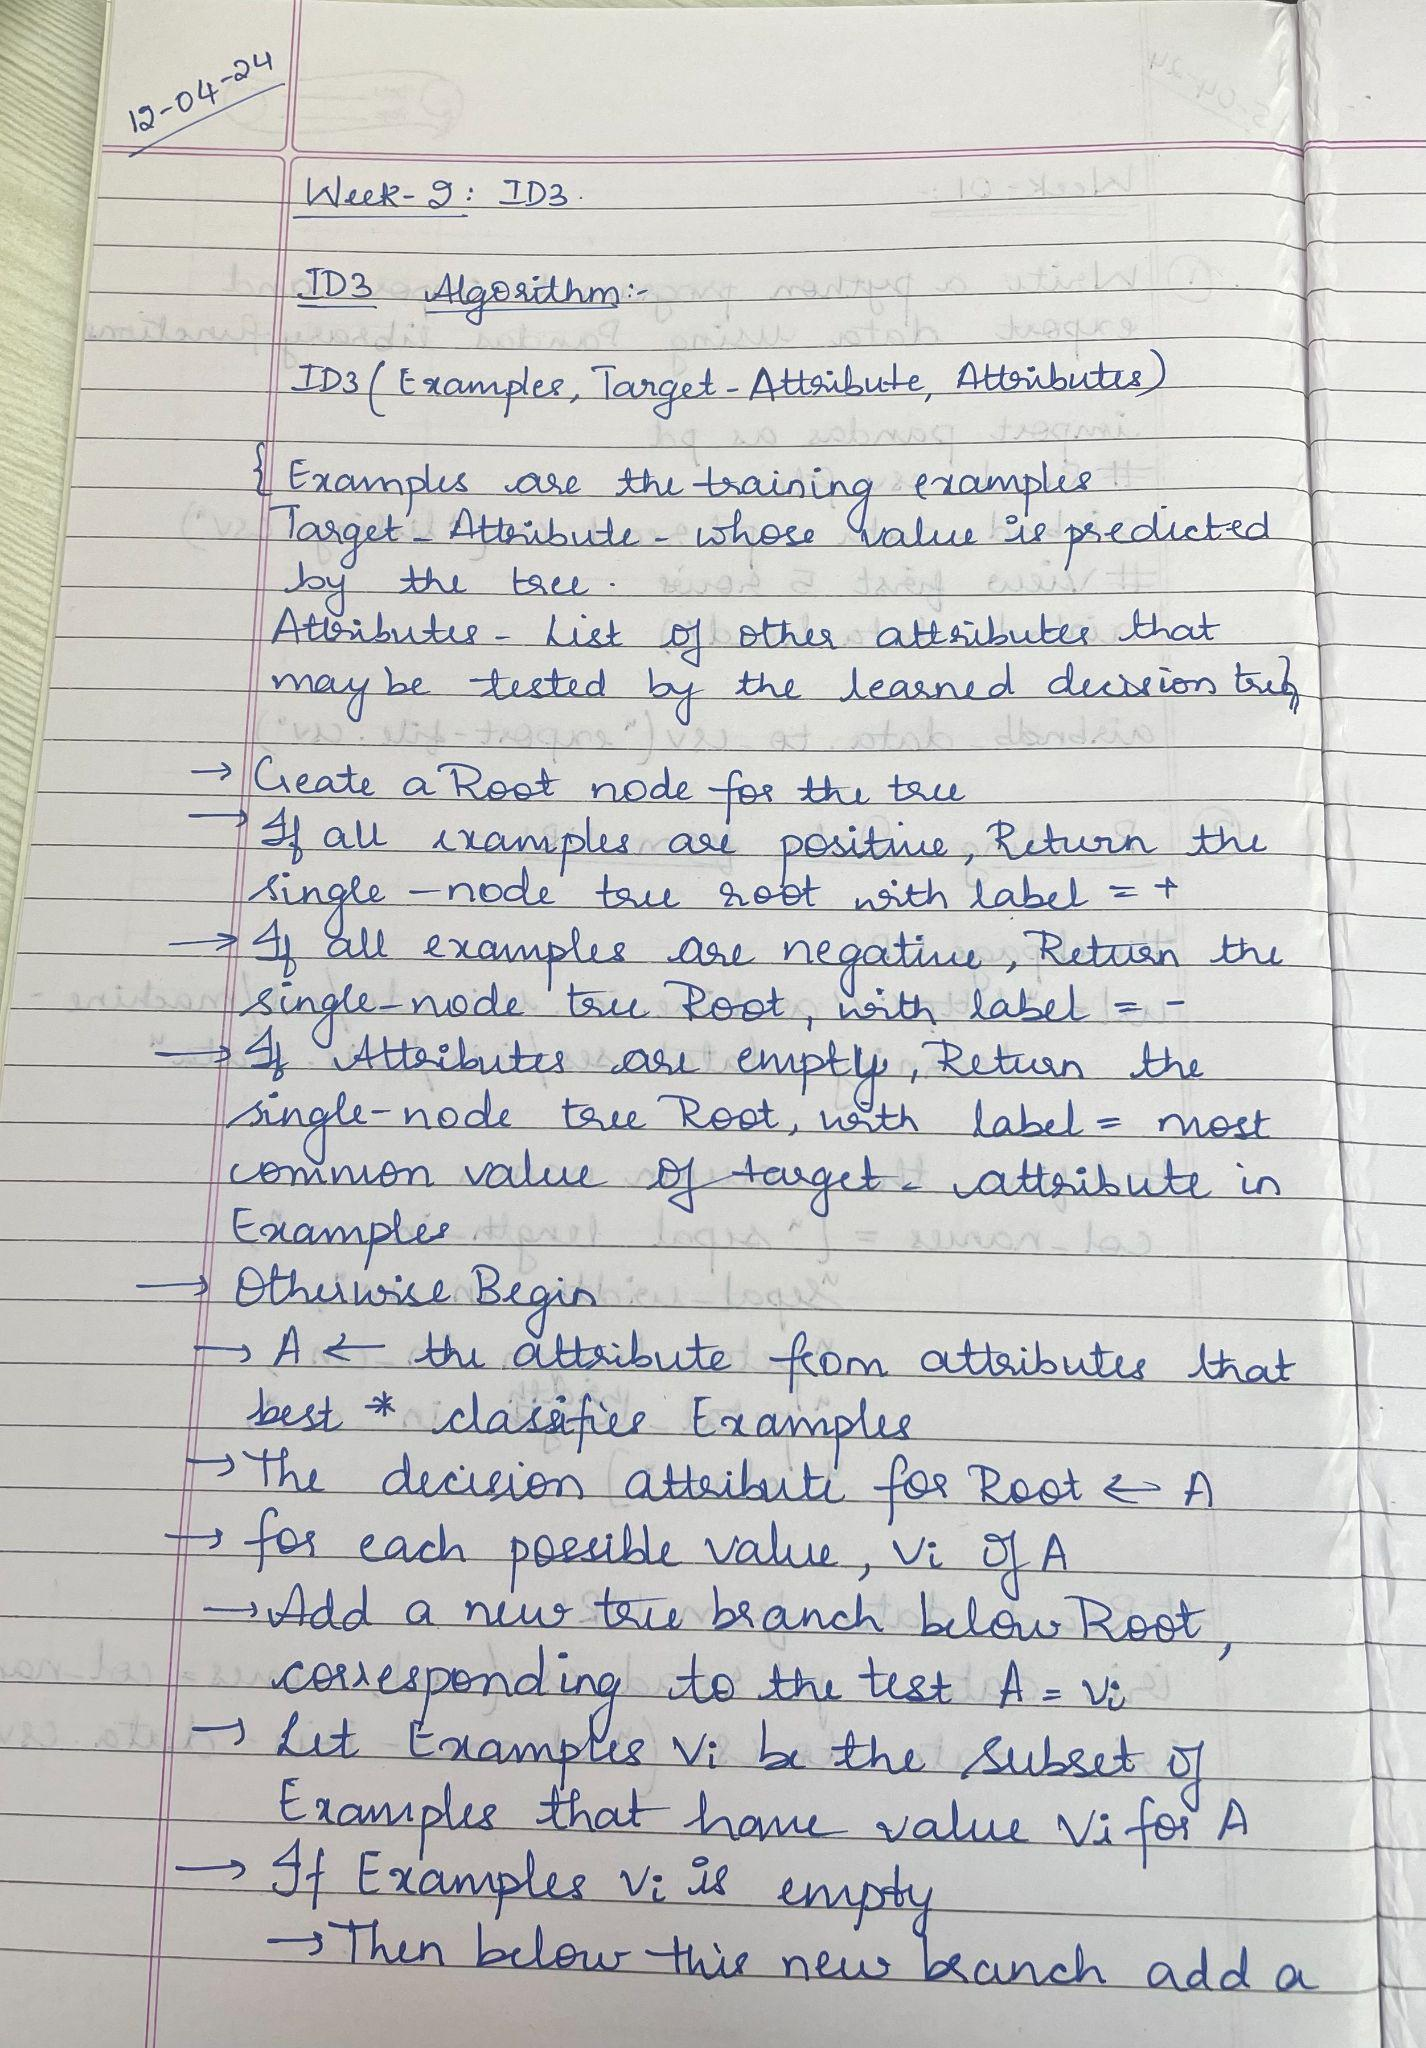 12-04-24
Week-2: ID3.
ID3 Algorithm:-
ID3 (Examples, Target-Attribute, Attributes)
{ Examples are the training examples
Target-Attribute - whose value is predicted
by the tree.
Attributes - List of other attributes that
may be tested by the learned decision tree}
→ Create a Root node for the tree
→ If all examples are positive, Return the
single-node tree root with label = +
→ If all examples are negative, Return the
single-node tree Root, with label = -
→ If Attributes are empty, Return the
single-node tree Root, with label = most
common value of target-attribute in
Examples
→ Otherwise Begin
→ A ← the attribute from attributes that
best * classifies Examples
→ The decision attribute for Root ← A
→ for each possible value, vi of A
→ Add a new tree branch below Root,
corresponding to the test A = vi
→ Let Examples vi be the subset of
Examples that have value vi for A
→ If Examples vi is empty
→ Then below this new branch add a